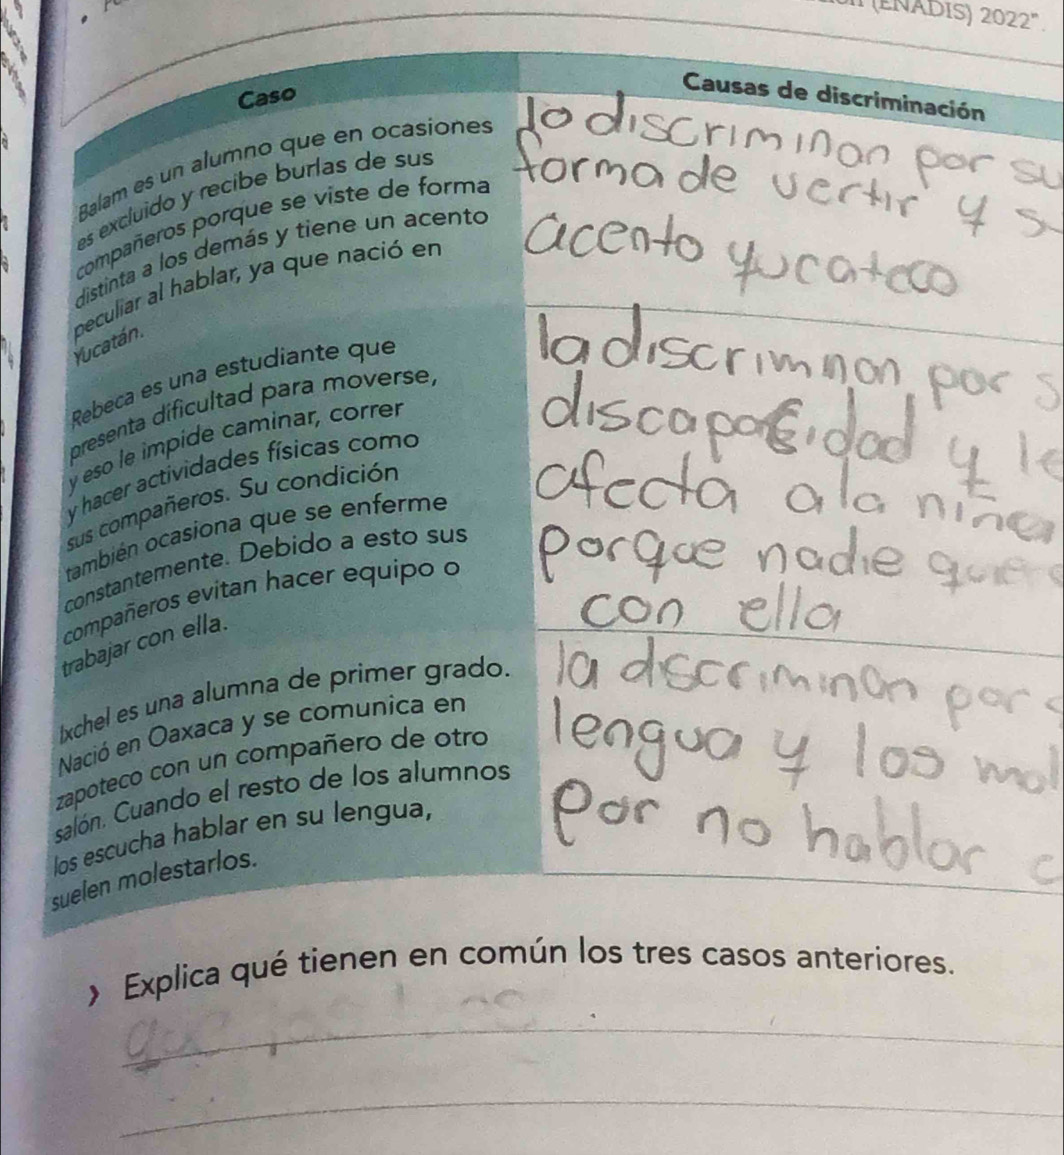 (ENADIS) 2022".
Caso
Causas de discriminación
Balam es un alumno que en ocasiones
es excluido y recibe burlas de sus
compañeros porque se viste de forma
distinta a los demás y tiene un acento
peculiar al hablar, ya que nació en
Yucatán.
lo discriminan por su
forma de vertir y s
acento yucateco
Rebeca es una estudiante que
presenta dificultad para moverse,
y eso le impide caminar, correr
y hacer actividades físicas como
sus compañeros. Su condición
también ocasiona que se enferme
constantemente. Debido a esto sus
compañeros evitan hacer equipo o
trabajar con ella.
la discrimnan por s
y le
afecta a la niña
porque nadie quere
con ella
Ixchel es una alumna de primer grado.
Nació en Oaxaca y se comunica en
zapoteco con un compañero de otro
salón. Cuando el resto de los alumnos
los escucha hablar en su lengua,
suelen molestarlos.
la discriminan por
lengua y los mol
por no hablar
Explica qué tienen en común los tres casos anteriores.